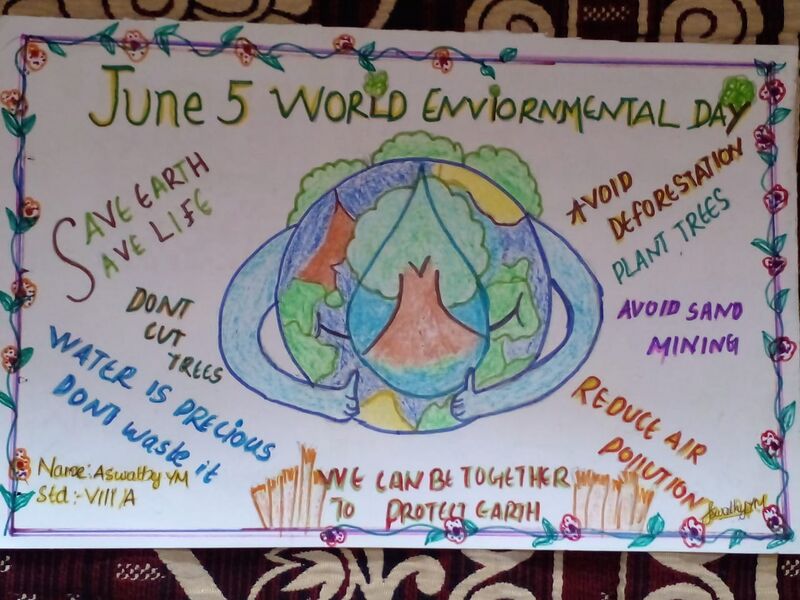 JUNE 5 WORLD ENVIORNMENTAL DAY
SAVE EARTH
SAVE LIFE
DONT
CUT
TREES
WATER IS PRECIOUS
DONT WASTE IT
AVOID
DEFORESTATION
PLANT TREES
AVOID SAND
MINING
REDUCE AIR
POLLUTION
WE CAN BE TOGETHER
TO PROTECT EARTH
Name:- Aswathy YM
Std:- VIII A
AswathyYM